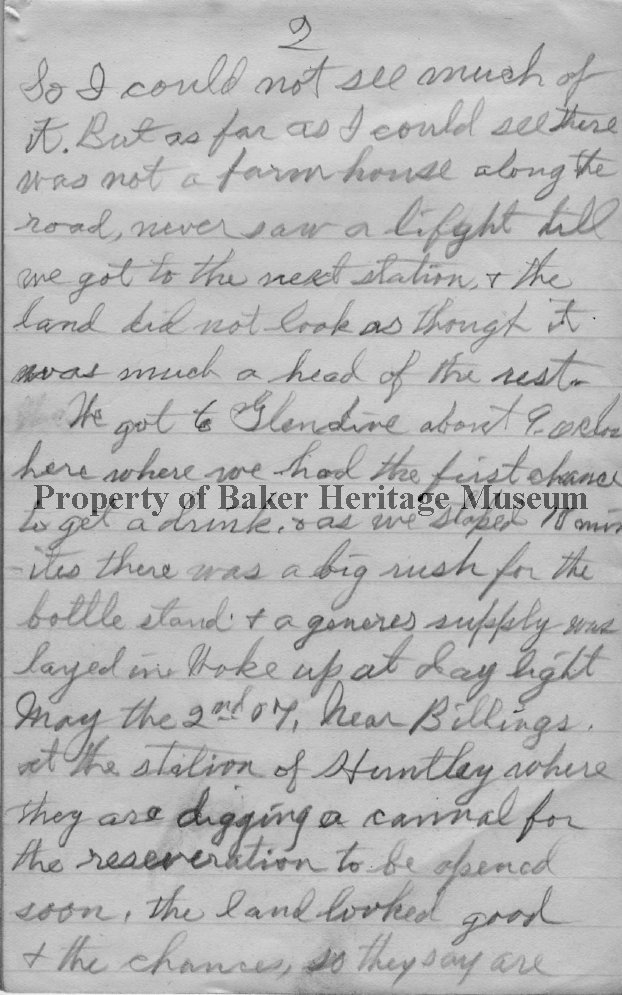 2
So I could not see much of
it. But as far as I could see there
was not a farm house along the
road, never saw a lifght till
we got to the next station, & the
land did not look as though it
was much a head of the rest.
We got to Glendive about 9. ocloc
here where we had the first chance
Property of Baker Heritage Museum
to get a drink, & as we stoped 10 min
-ites there was a big rush for the
bottle stand & a generes supply was
layed in. Woke up at day light
May the 2nd 07, Near Billings.
at the station of Huntley where
they are digging a cannal for
the reseveration to be opened
soon, the land looked good
& the chances, so they say are